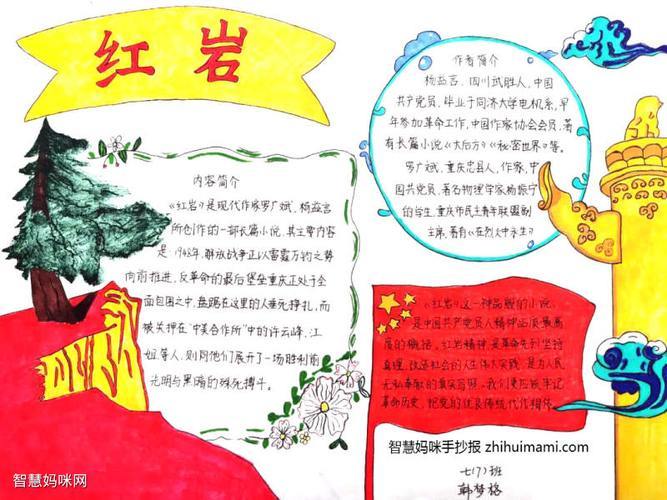 红岩
作者简介
杨益言，四川武胜人，中国
共产党员，毕业于同济大学电机系，早
年参加革命工作，中国作家协会会员，著
有长篇小说《大后方》《秘密世界》等。
罗广斌，重庆忠县人，作家，中
国共产党员，著名物理学家杨振宁
的学生，重庆市民主青年联盟副
主席，著有《在烈火中永生》
内容简介
《红岩》是现代作家罗广斌，杨益言
所创作的一部长篇小说，其主要内容
是：1948年，解放战争正以雷霆万钧之势
向前推进，反革命的最后堡垒重庆正处于全
面包围之中，盘踞在这里的人垂死挣扎，而
被关押在“中美合作所”中的许云峰，江
姐等人，则同他们展开了一场胜利前
光明与黑暗的殊死搏斗。
《红岩》这一种品貌的小说，
是中国共产党员人精神品质最高
度的概括，红岩精神，是革命先烈坚持
真理，改造社会的人生伟大实践，是为人民
无私奉献的真实写照，我们更应该牢记
革命历史，把党的优良传统代代相传
智慧妈咪手抄报 zhihuimami.com
七(7)班
韩梦格
智慧妈咪网